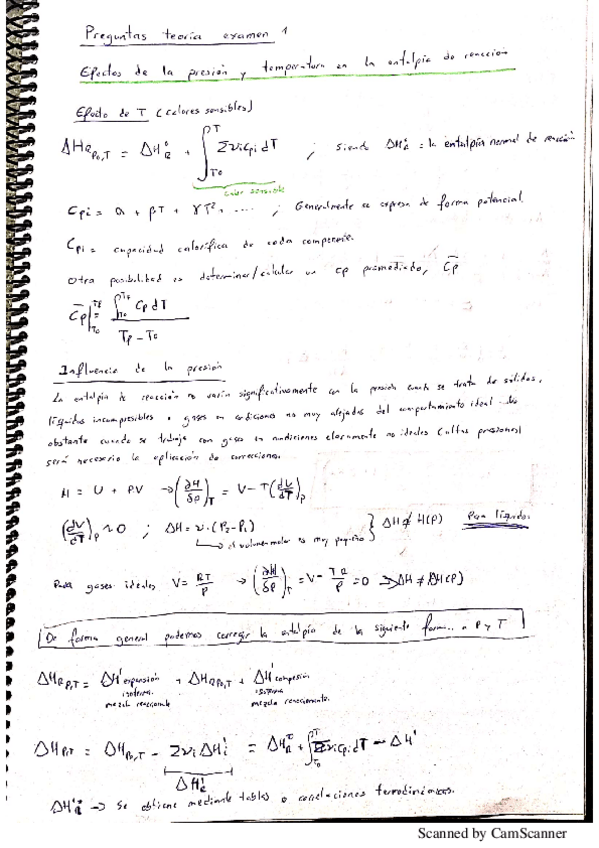 Preguntas teoría examen 1
Efectos de la presión y temperatura en la entalpía de reacción
Efecto de T (calores sensibles)
ΔH_R P₀,T = ΔH°_R + ∫_{T₀}^{T} Σνi Cpi dT ; siendo ΔH°_R = la entalpía normal de reacción
Calor sensible
Cpi = α + βT + γT² + .... ; Generalmente se expresa de forma potencial.
Cpi = capacidad calorífica de cada componente.
Otra posibilidad es determinar/calcular un cp promediado, C̄p
C̄p|_{T₀}^{Tf} = ∫ Cp dT / (TF - T₀)
Influencia de la presión
La entalpía de reacción no varía significativamente con la presión cuando se trata de sólidos,
líquidos incompresibles o gases en condiciones no muy alejados del comportamiento ideal. No
obstante cuando se trabaja con gases en condiciones claramente no ideales (altas presiones)
será necesario la aplicación de correcciones.
H = U + PV → (∂H/∂P)_T = V - T(dV/dT)_P
(dV/dT)_P ~ 0 ; ΔH = v·(P₂-P₁) } ΔH ≠ H(P) Para líquidos
el volumen molar es muy pequeño
Para gases ideales V = RT/P → (∂H/∂P)_T = V - TR/P = 0 → ΔH ≠ ΔH(P)
De forma general podemos corregir la entalpía de la siguiente forma... a P y T
ΔH_R P,T = ΔH' expansión + ΔH_R P₀,T + ΔH' compresión
isoterma isoterma
mezcla reaccionante mezcla reaccionante.
ΔH P,T = ΔH P₀,T - Σνi ΔH'i = ΔH°_R + ∫_{T₀}^{T} Σνi Cpi dT - ΔH'
→ Se obtiene mediante tablas o correlaciones termodinámicas.
Scanned by CamScanner